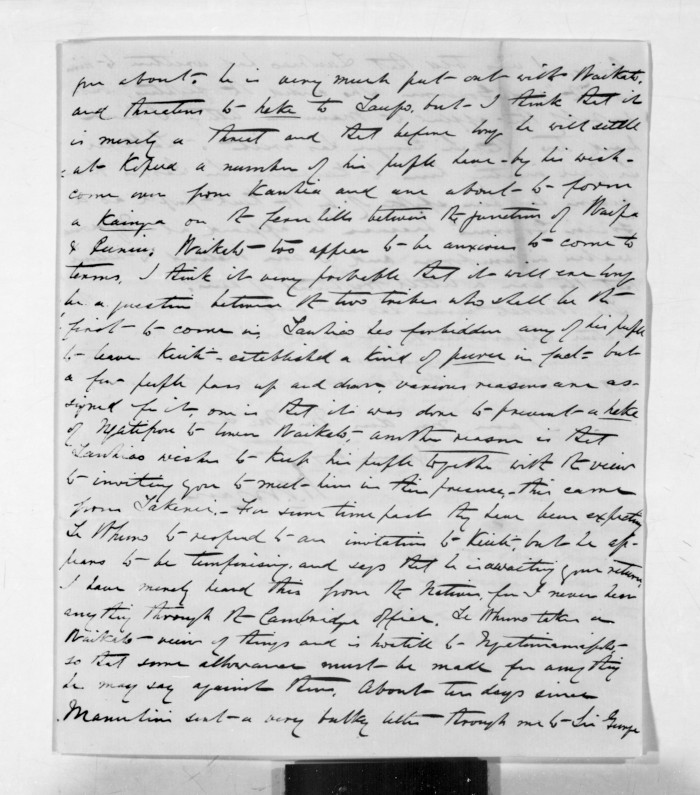 you about. he is very much put out with Waikato,
and threatens to heke to Taupo, but I think that it
is merely a threat and that before long he will settle
at Kopua a number of his people have by his wish
come over from Kawhia and are about to form
a Kainga on the fern hills between the junction of Waipa
& Puniu; Waikato too appear to be anxious to come to
terms, I think it very probable that it will ere long
be a question between the two tribes who shall be the
first to come in, Tawhiao has forbidden any of his people
to leave Kuiti established a kind of in fact but
a few people pass up and down, various reasons are as-
signed for it, one is that it was done to prevent a heke
of Ngatipou to lower Waikato another reason is that
Tawhiao wishes to keep his people together with the view
to inviting you to meet him in their presence, this came
from Takerei. For some time past they have been expecting
Te Whuru to respond to an invitation to Kuiti, but he ap-
pears to be temporising, and says that he is awaiting your return,
I have merely heard this from the Natives, for I never hear
anything through the Cambridge Officer, Te Whuru takes a
Waikato view of things and is hostile to Ngatimaniapoto
so that some allowance must be made for anything
he may say against them. About ten days since
Manuhiri sent a very bulky letter through me to Sir George